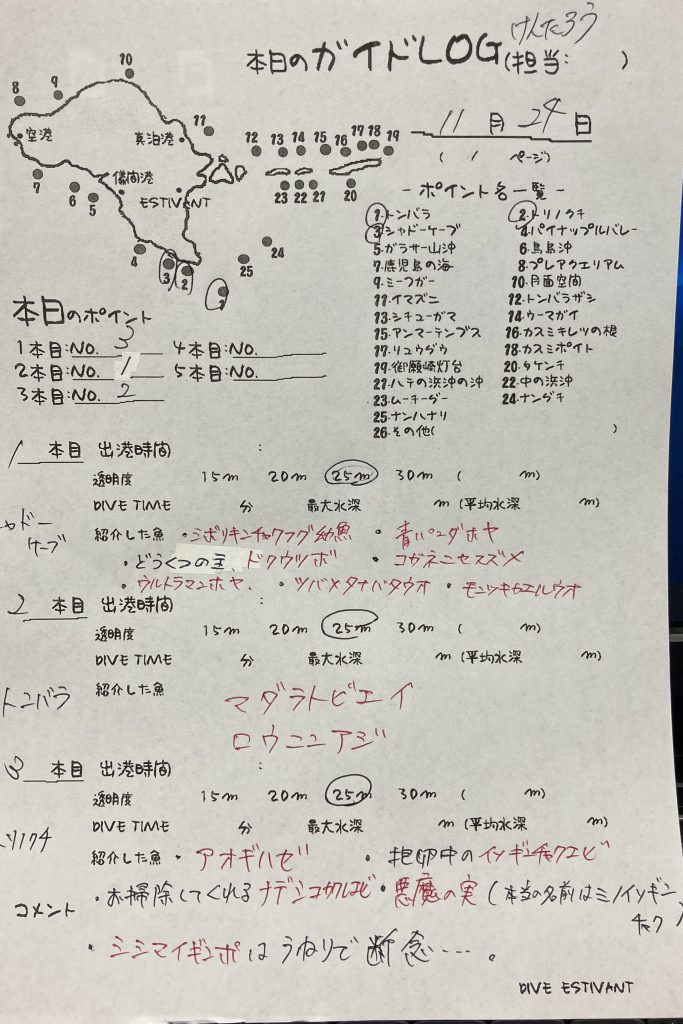 けんたろう
本日のガイドLOG(担当:　　)
11月24日
(　1　ページ)
10
9
8
空港
11
真泊港
12 13 14 15 16 17 18 19
7
6
5
儀間港
ESTIVANT
23 22 21
20
4
3
2
25
24
1
-ポイント名一覧-
1.トンバラ
2.トリノクチ
3.シャドーケーブ
4.パイナップルバレー
5.ガラサー山沖
6.鳥島沖
7.鹿児島の海
8.プレアクエリアム
9.ミーフガー
10.月面空間
11.イマズニ
12.トンバラザシ
13.シチューガマ
14.ウーマガイ
15.アンマーテンプス
16.カスミキレツの根
17.リュウグウ
18.カスミポイント
19.御願崎灯台
20.タケンチ
21.ハテの浜沖の沖
22.中の浜沖
23.ムーチーグー
24.ナングチ
25.ナンハナリ
26.その他(　　)
本日のポイント
1本目:NO. 3
4本目:NO.
2本目:NO. 1
5本目:NO.
3本目:NO. 2
1 本目 出港時間　:
透明度　15m　20m　25m　30m　(　m)
DIVE TIME　分　最大水深　m(平均水深　m)
シャドーケーブ
紹介した魚 ・シボリキンチャクフグ幼魚 ・青いパンダホヤ
・どうくつの主、ドクウツボ ・コガネニセスズメ
・ウルトラマンホヤ、・ツバメタナバタウオ ・モンツキカエルウオ
2 本目 出港時間　:
透明度　15m　20m　25m　30m　(　m)
DIVE TIME　分　最大水深　m(平均水深　m)
トンバラ
紹介した魚 マダラトビエイ
ロウニンアジ
3 本目 出港時間　:
透明度　15m　20m　25m　30m　(　m)
DIVE TIME　分　最大水深　m(平均水深　m)
トリノクチ
紹介した魚・アオギハゼ ・抱卵中のイソギンチャクエビ
・お掃除してくれるナデシコカクレエビ・悪魔の実(本当の名前はミノイソギンチャク)
コメント
・シシマイギンポはうねりで断念…。
DIVE ESTIVANT